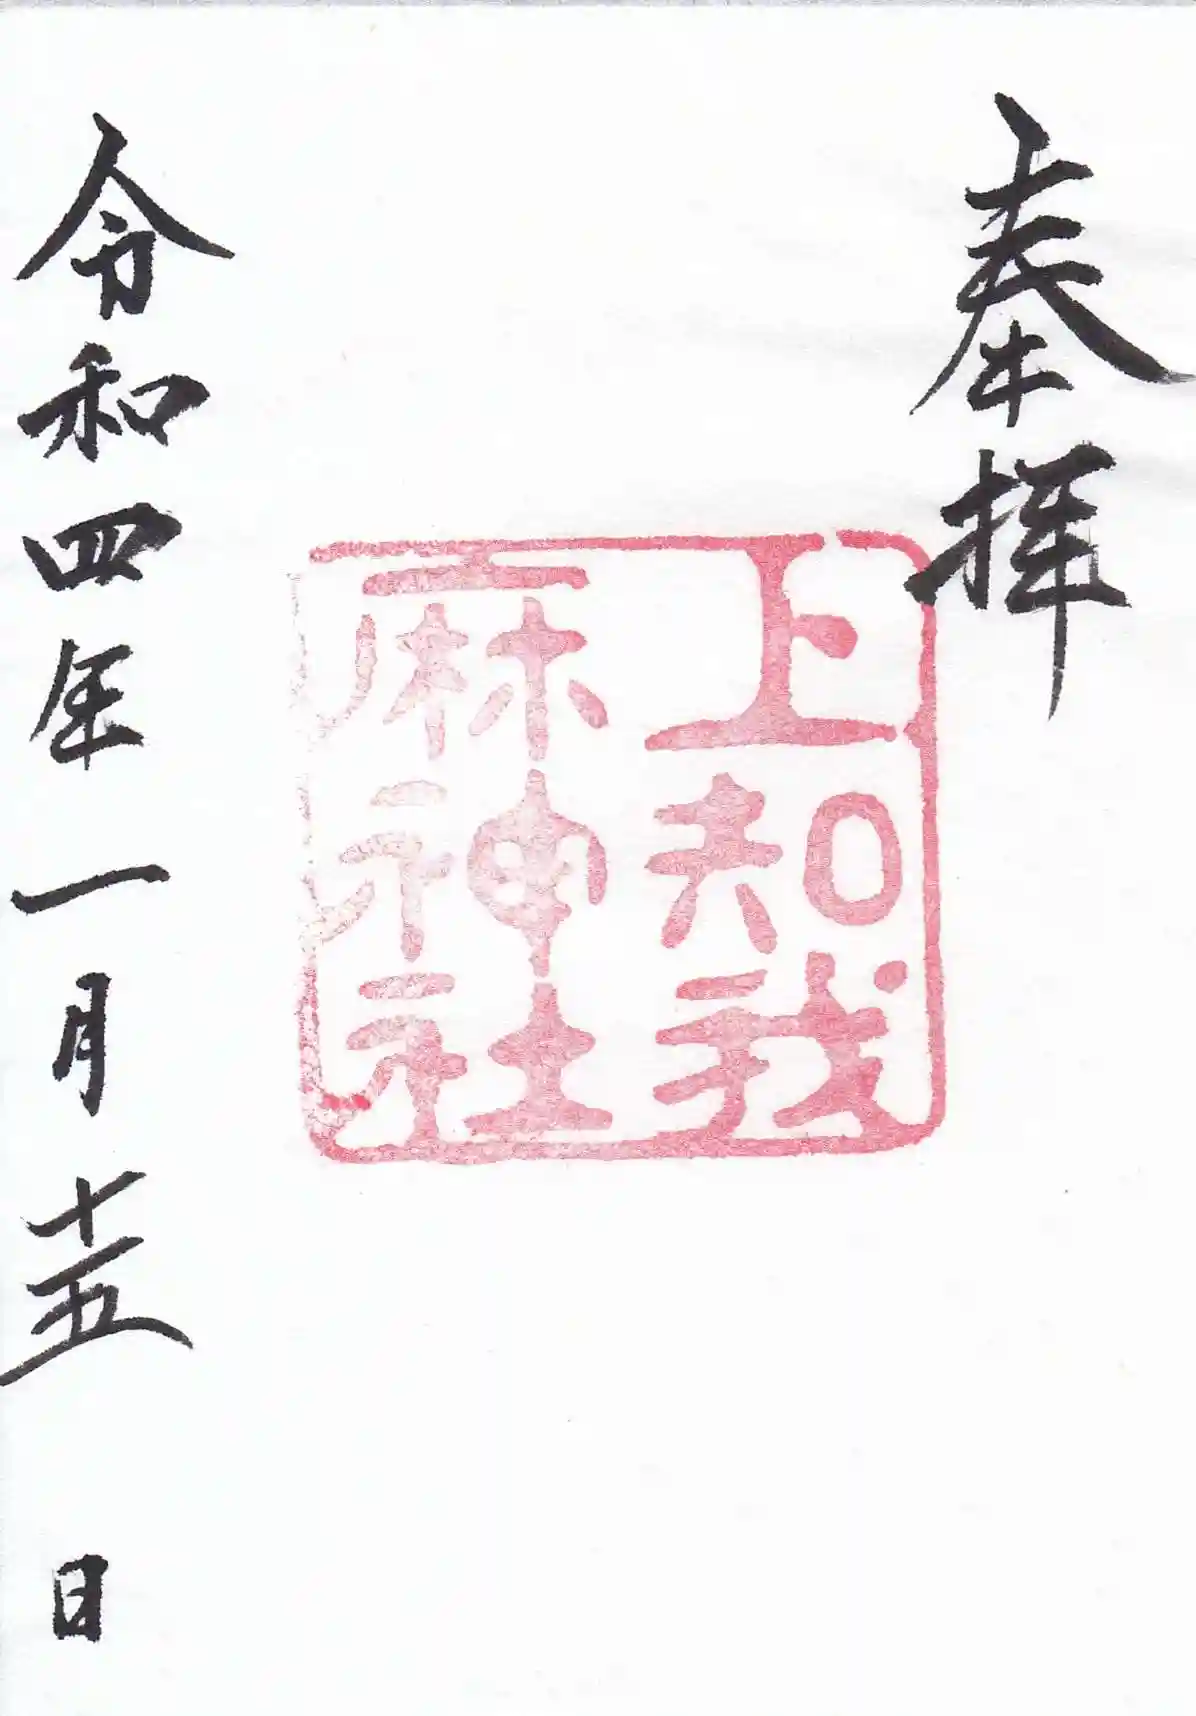 奉拝
上知我
麻神社
令和四年一月十五日